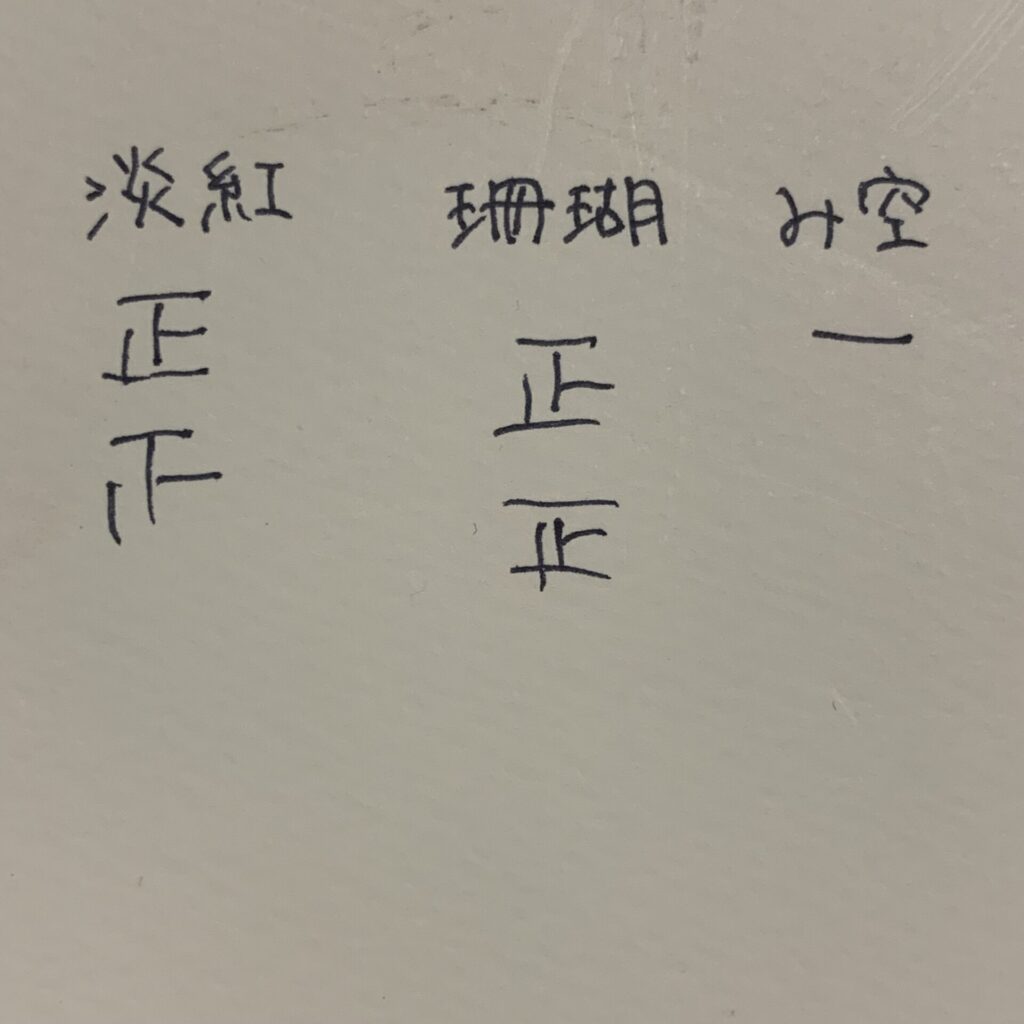 淡紅 珊瑚 み空
正 正 一
正